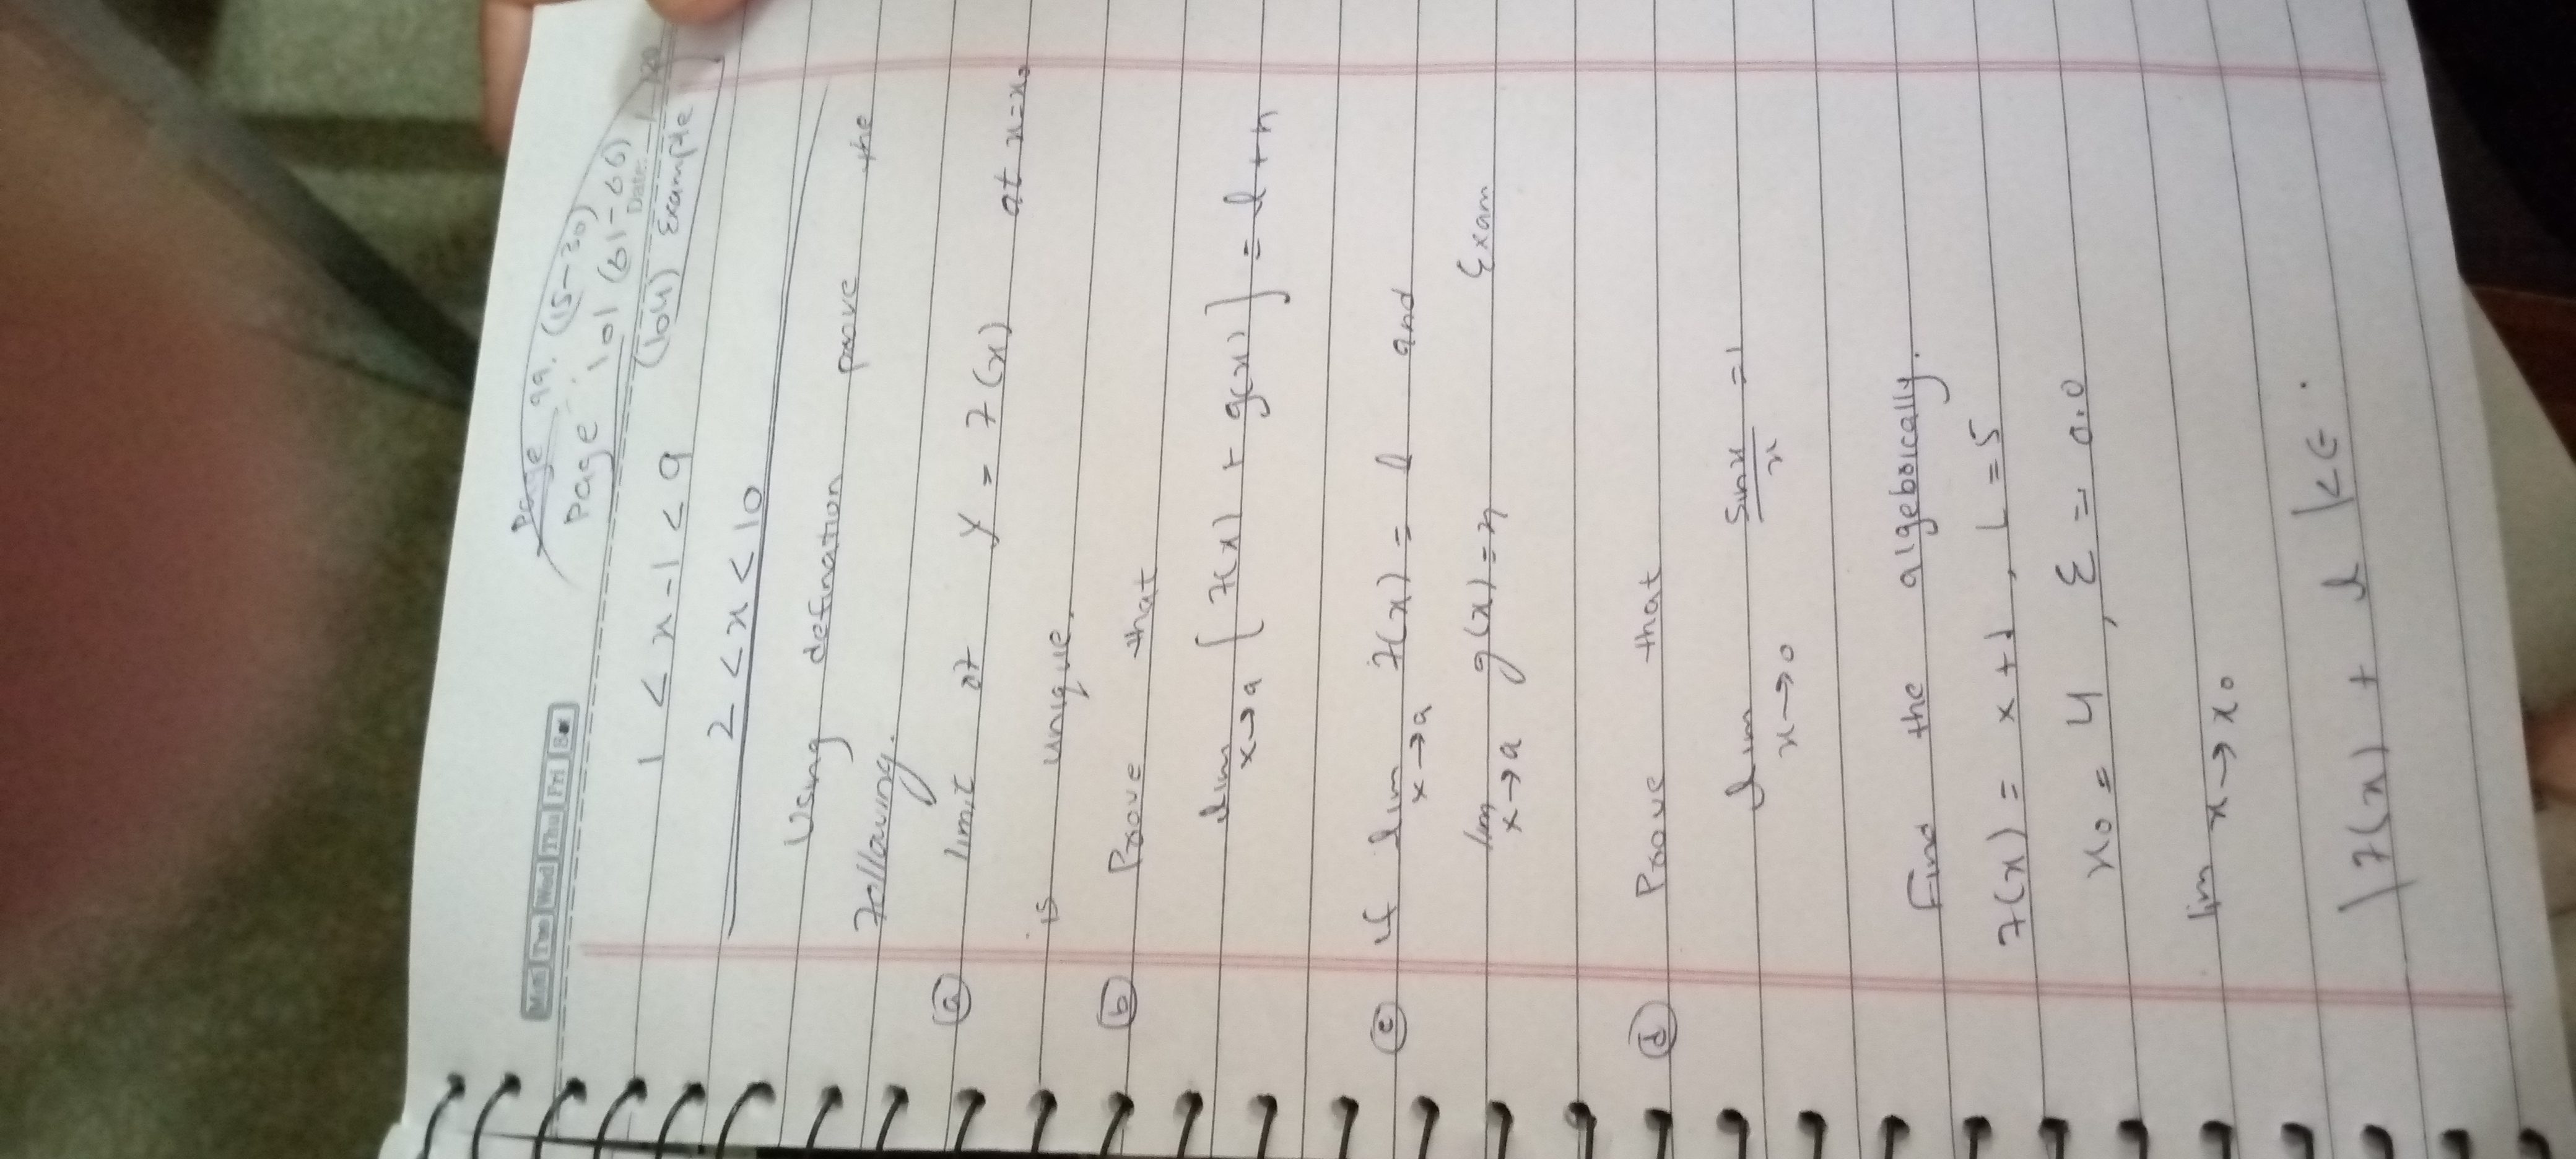 Mon Tue Wed Thu Fri Sat
Page 99. (15-30)
Page 101 (61-66)
Date: / /20
(104) Example
1 < x - 1 < 9
2 < x < 10
Using defination prove the
following.
(a) limit of y = f(x) at x = x₀
is unique.
(b) Prove that
lim [f(x) + g(x)] = l + n
x→a
(c) if lim f(x) = l and
x→a
lim g(x) = n Exam
x→a
(d) Prove that
lim sinx/x = 1
x→0
Find the algebrically.
f(x) = x + 1, L = 5
x₀ = 4, ε = 0.0
lim x→x₀
|f(x) + l| < ε.